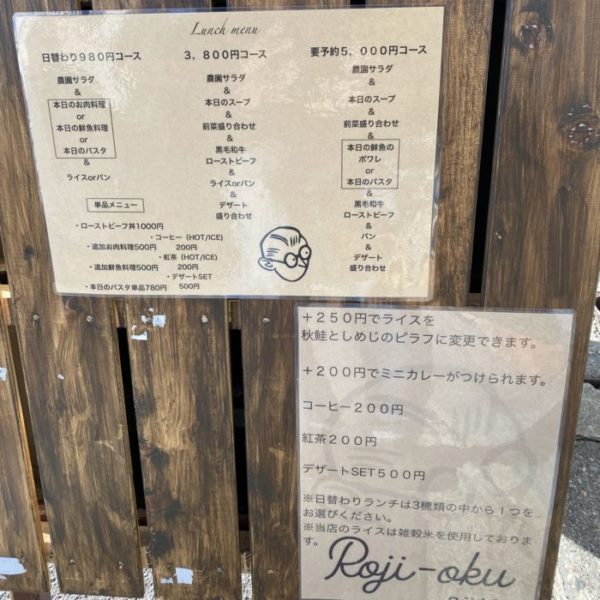 Lunch menu
日替わり980円コース
農園サラダ
&
本日のお肉料理
or
本日の鮮魚料理
or
本日のパスタ
&
ライスorパン
単品メニュー
・ローストビーフ丼1000円
・追加お肉料理500円
・追加鮮魚料理500円
・本日のパスタ単品780円
・コーヒー（HOT/ICE）
200円
・紅茶（HOT/ICE）
200円
・デザートSET
500円
3，800円コース
農園サラダ
&
本日のスープ
&
前菜盛り合わせ
&
黒毛和牛
ローストビーフ
&
ライスorパン
&
デザート
盛り合わせ
要予約5，000円コース
農園サラダ
&
本日のスープ
&
前菜盛り合わせ
&
本日の鮮魚の
ポワレ
or
本日のパスタ
&
黒毛和牛
ローストビーフ
&
パン
&
デザート
盛り合わせ
＋250円でライスを
秋鮭としめじのピラフに変更できます。
＋200円でミニカレーがつけられます。
コーヒー200円
紅茶200円
デザートSET500円
※日替わりランチは3種類の中から1つを
お選びください。
※当店のライスは雑穀米を使用しておりま
す。
Roji-oku